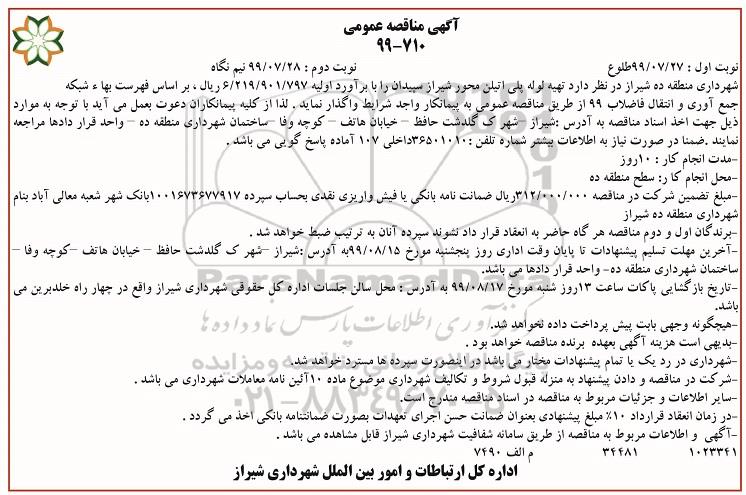 آگهی مناقصه عمومی
۹۹-۷۱۰
نوبت اول : ۹۹/۰۷/۲۷طلوع نوبت دوم : ۹۹/۰۷/۲۸ نیم نگاه
شهرداری منطقه ده شیراز در نظر دارد تهیه لوله پلی اتیلن محور شیراز سپیدان را با برآورد اولیه ۶/۲۱۹/۹۰۱/۷۹۷ ریال ، بر اساس فهرست بهاء شبکه
جمع آوری و انتقال فاضلاب ۹۹ از طریق مناقصه عمومی به پیمانکار واجد شرایط واگذار نماید . لذا از کلیه پیمانکاران دعوت بعمل می آید با توجه به موارد
ذیل جهت اخذ اسناد مناقصه به آدرس :شیراز –شهر ک گلدشت حافظ – خیابان هاتف – کوچه وفا –ساختمان شهرداری منطقه ده – واحد قرار دادها مراجعه
نمایند .ضمنا در صورت نیاز به اطلاعات بیشتر شماره تلفن :۳۶۵۰۱۰۱۰داخلی ۱۰۷ آماده پاسخ گویی می باشد .
–مدت انجام کار : ۱۰روز
–محل انجام کا ر: سطح منطقه ده
–مبلغ تضمین شرکت در مناقصه ۳۱۲/۰۰۰/۰۰۰ریال ضمانت نامه بانکی یا فیش واریزی نقدی بحساب سپرده ۱۰۰۱۶۷۳۶۷۷۹۱۷بانک شهر شعبه معالی آباد بنام
شهرداری منطقه ده شیراز
–برندگان اول و دوم مناقصه هر گاه حاضر به انعقاد قرار داد نشوند سپرده آنان به ترتیب ضبط خواهد شد .
–آخرین مهلت تسلیم پیشنهادات تا پایان وقت اداری روز پنجشنبه مورخ ۹۹/۰۸/۱۵به آدرس :شیراز –شهر ک گلدشت حافظ – خیابان هاتف –کوچه وفا –
ساختمان شهرداری منطقه ده– واحد قرار دادها می باشد.
–تاریخ بازگشایی پاکات ساعت ۱۳روز شنبه مورخ ۹۹/۰۸/۱۷ به آدرس : محل سالن جلسات اداره کل حقوقی شهرداری شیراز واقع در چهار راه خلدبرین می
باشد.
–هیچگونه وجهی بابت پیش پرداخت داده نخواهد شد.
–بدیهی است هزینه آگهی بعهده برنده مناقصه خواهد بود .
–شهرداری در رد یک یا تمام پیشنهادات مختار می باشد در اینصورت سپرده ها مسترد خواهد شد.
–شرکت در مناقصه و دادن پیشنهاد به منزله قبول شروط و تکالیف شهرداری موضوع ماده ۱۰آئین نامه معاملات شهرداری می باشد .
–سایر اطلاعات و جزئیات مربوط به مناقصه در اسناد مناقصه مندرج است.
–در زمان انعقاد قرارداد ۱۰٪ مبلغ پیشنهادی بعنوان ضمانت حسن اجرای تعهدات بصورت ضمانتنامه بانکی اخذ می گردد .
–آگهی و اطلاعات مربوط به مناقصه از طریق سامانه شفافیت شهرداری شیراز قابل مشاهده می باشد .
۱۰۲۳۳۴۱ ۳۴۴۸۱ م الف ۷۴۹۰
اداره کل ارتباطات و امور بین الملل شهرداری شیراز
ParsNamadData
فن آوری اطلاعات پارس نماد داده ها
۰۲۱-۸۸۳۴۹۶۷۰-۵